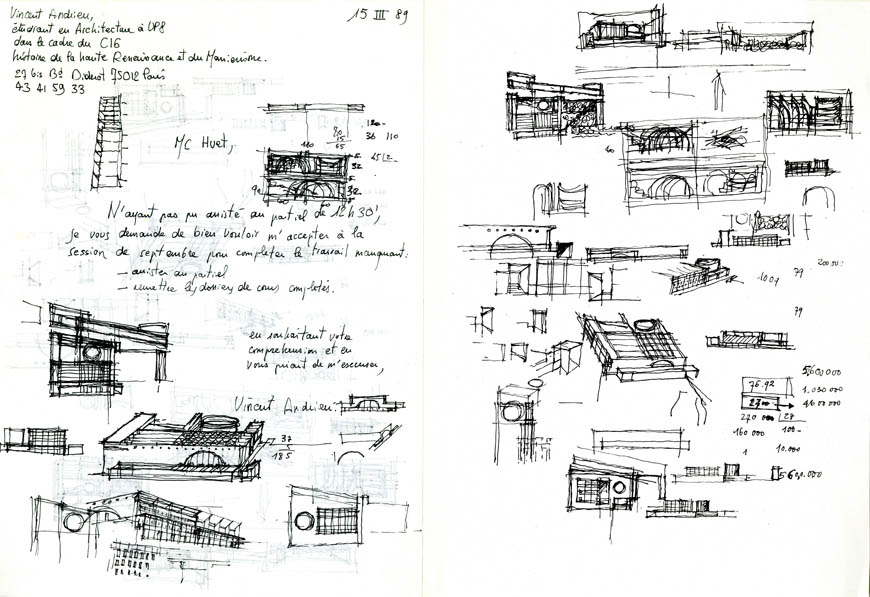 Vincent Andrieu,
étudiant en Architecture à UP8
dans le cadre du C16
histoire de la haute Renaissance et du Maniérisme.
27 bis Bd Diderot 75012 Paris
43 41 59 33
15 III 89
MC Huet,
N'ayant pas pu assisté au partiel de 12h30',
je vous demande de bien vouloir m'accepter à la
session de septembre pour completer le travail manquant:
— assister au partiel
— remettre les dossiers de cours complétés.
en souhaitant votre
comprehension et en
vous priant de m'excuser,
Vincent Andrieu.
37
185
180
110
79
79
560.000
76.92
1.030.000
2700
160.000
10.000
1
560.000